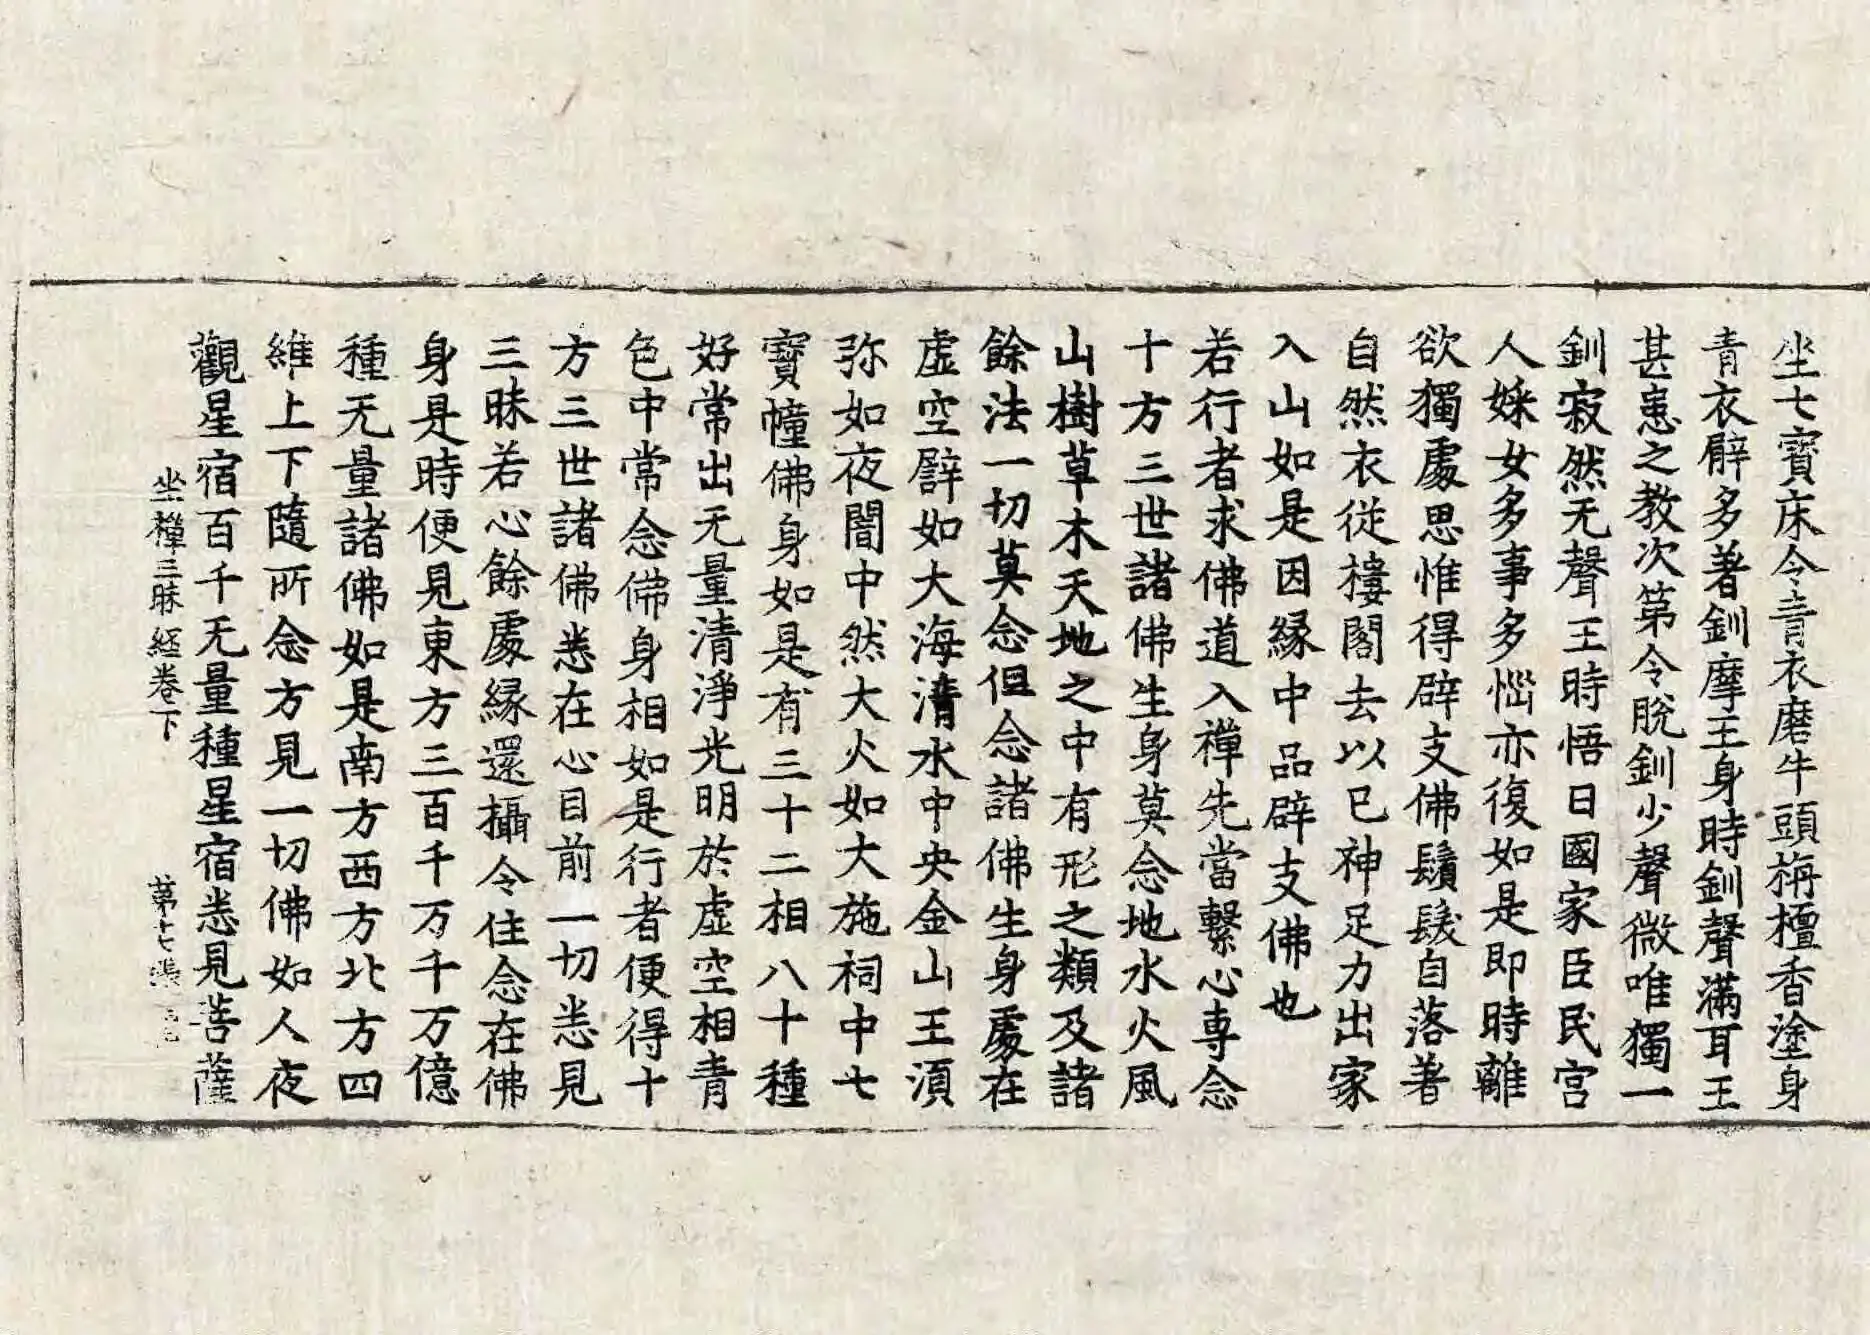 坐七寶床令青衣磨牛頭栴檀香塗身
青衣臂多著釧摩王身時釧聲滿耳王
甚患之教次第令脫釧少聲微唯獨一
釧寂然无聲王時悟曰國家臣民宮
人婇女多事多惱亦復如是即時離
欲獨處思惟得辟支佛鬚髮自落著
自然衣從樓閣去以已神足力出家
入山如是因緣中品辟支佛也
若行者求佛道入禪先當繫心專念
十方三世諸佛生身莫念地水火風
山樹草木天地之中有形之類及諸
餘法一切莫念但念諸佛生身處在
虛空譬如大海清水中央金山王須
弥如夜闇中然大火如大施祠中七
寶幢佛身如是有三十二相八十種
好常出无量清淨光明於虛空相青
色中常念佛身相如是行者便得十
方三世諸佛悉在心目前一切悉見
三昧若心餘處緣還攝令住念在佛
身是時便見東方三百千万千万億
種无量諸佛如是南方西方北方四
維上下隨所念方見一切佛如人夜
觀星宿百千无量種星宿悉見菩薩
坐禪三昧經卷下 第十七張